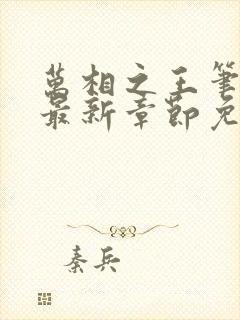 萬相之王筆
最新章節免
秦兵